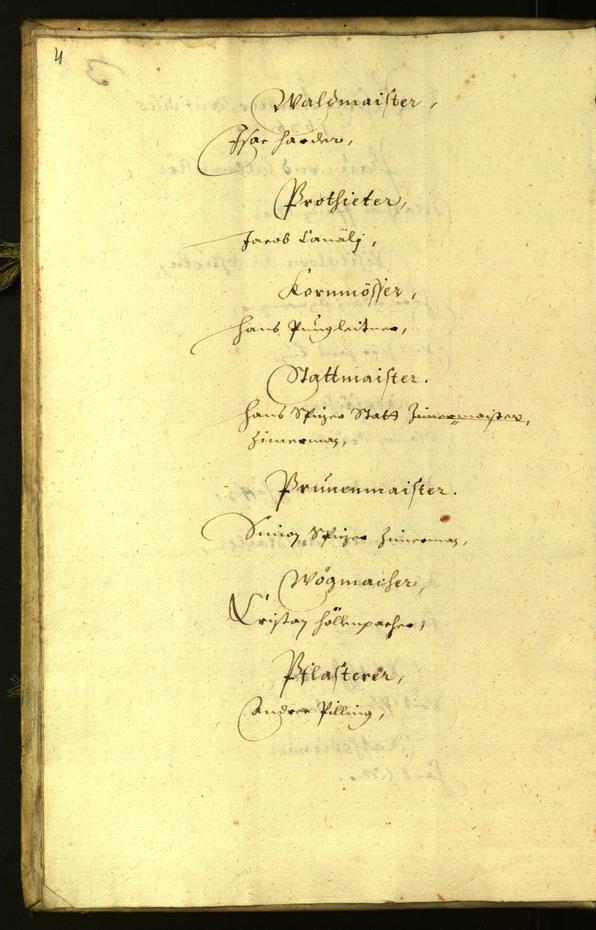 4
Waldmaister,
Isac harder,
Prothieter,
Jacob Canälj,
Kornmösser,
hans Pungleitner,
Stattmaister.
hans Spizer Statt Zimermaister,
Zimerman,
Prunenmaister.
Simon Spizer Zimerman,
Wögmacher,
Cristan höllenpacher,
Pflasterer,
Andree Pilling,